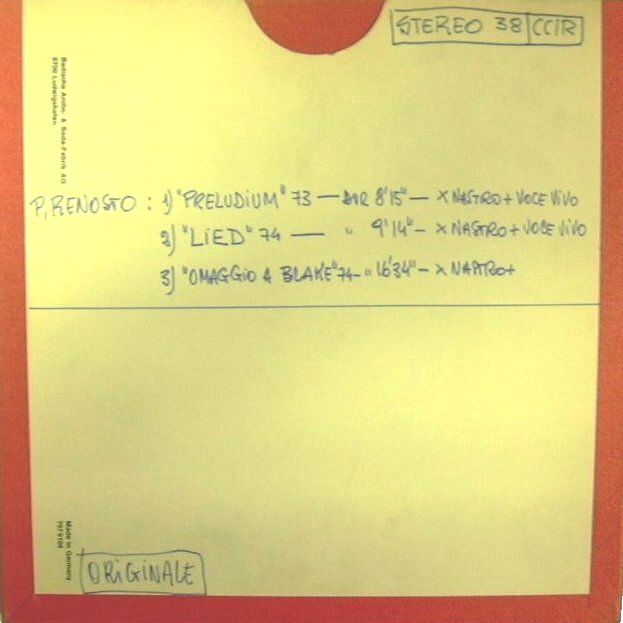 STEREO 38 CCIR
Badische Anilin- & Soda-Fabrik AG
6700 Ludwigshafen
P. RENOSTO : 1) "PRELUDIUM" 73 — DUR 8'15" — X NASTRO + VOCE VIVO
2) "LIED" 74 — " 9'14" — X NASTRO + VOCE VIVO
3) "OMAGGIO A BLAKE" 74 - " 16'34" — X NASTRO +
Made in Germany
ORIGINALE